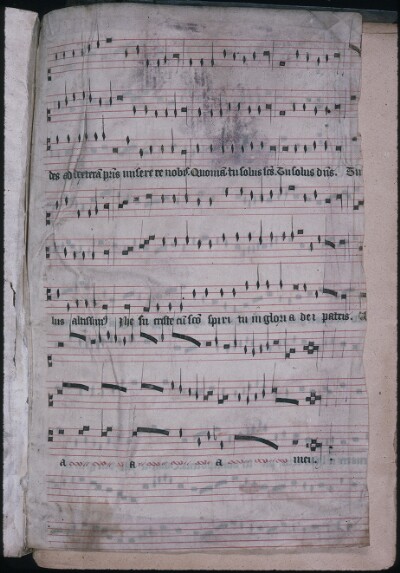 des ad dexterā pris miserere nobis. Quoniā tu solus scs. Tu solus dns. Tu
lus altissim9 Jhe su criste cū scō spiri tu in glori a dei patris. A
a a a men.